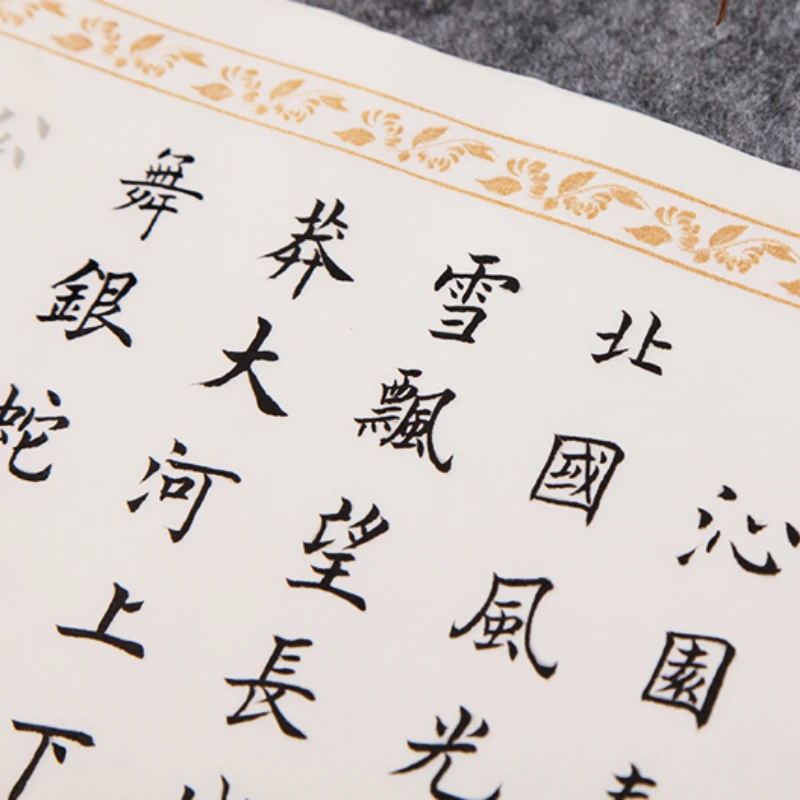 沁園
北國風光
雪飄望長
莽大河上下
舞銀蛇